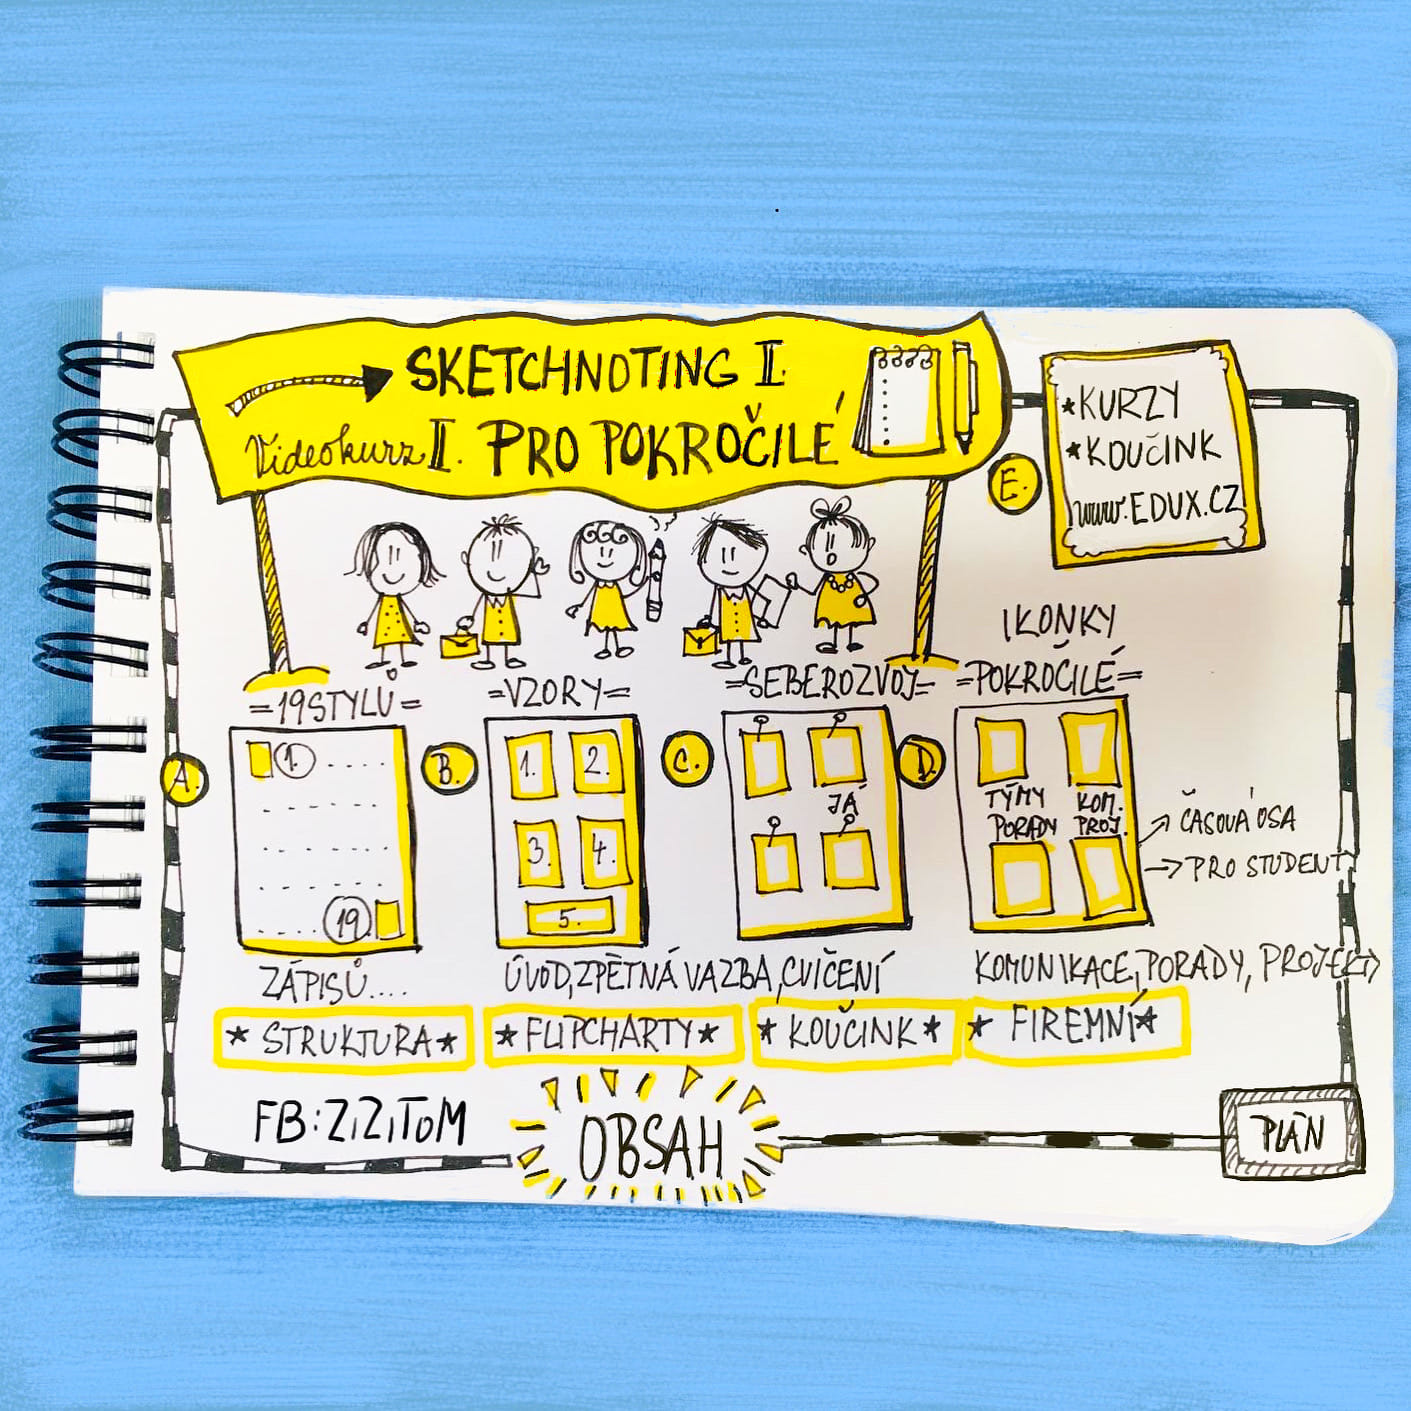 SKETCHNOTING II.
Videokurz II. PRO POKROČILÉ
E.
★KURZY
★KOUČINK
www.EDUX.CZ
A.
=19 STYLŮ=
1.
19.
ZÁPISŮ....
★ STRUKTURA★
B.
=VZORY=
1. 2.
3. 4.
5.
ÚVOD, ZPĚTNÁ VAZBA, CVIČENÍ
★FLIPCHARTY★
C.
=SEBEROZVOJ=
JÁ
★ KOUČINK★
D.
IKONKY
=POKROČILÉ=
TÝMY KOM.
PORADY PROJ.
→ ČASOVÁ OSA
→ PRO STUDENTY
KOMUNIKACE, PORADY, PROJEKTY
★ FIREMNÍ★
FB: ZiZiToM
OBSAH
PLÁN